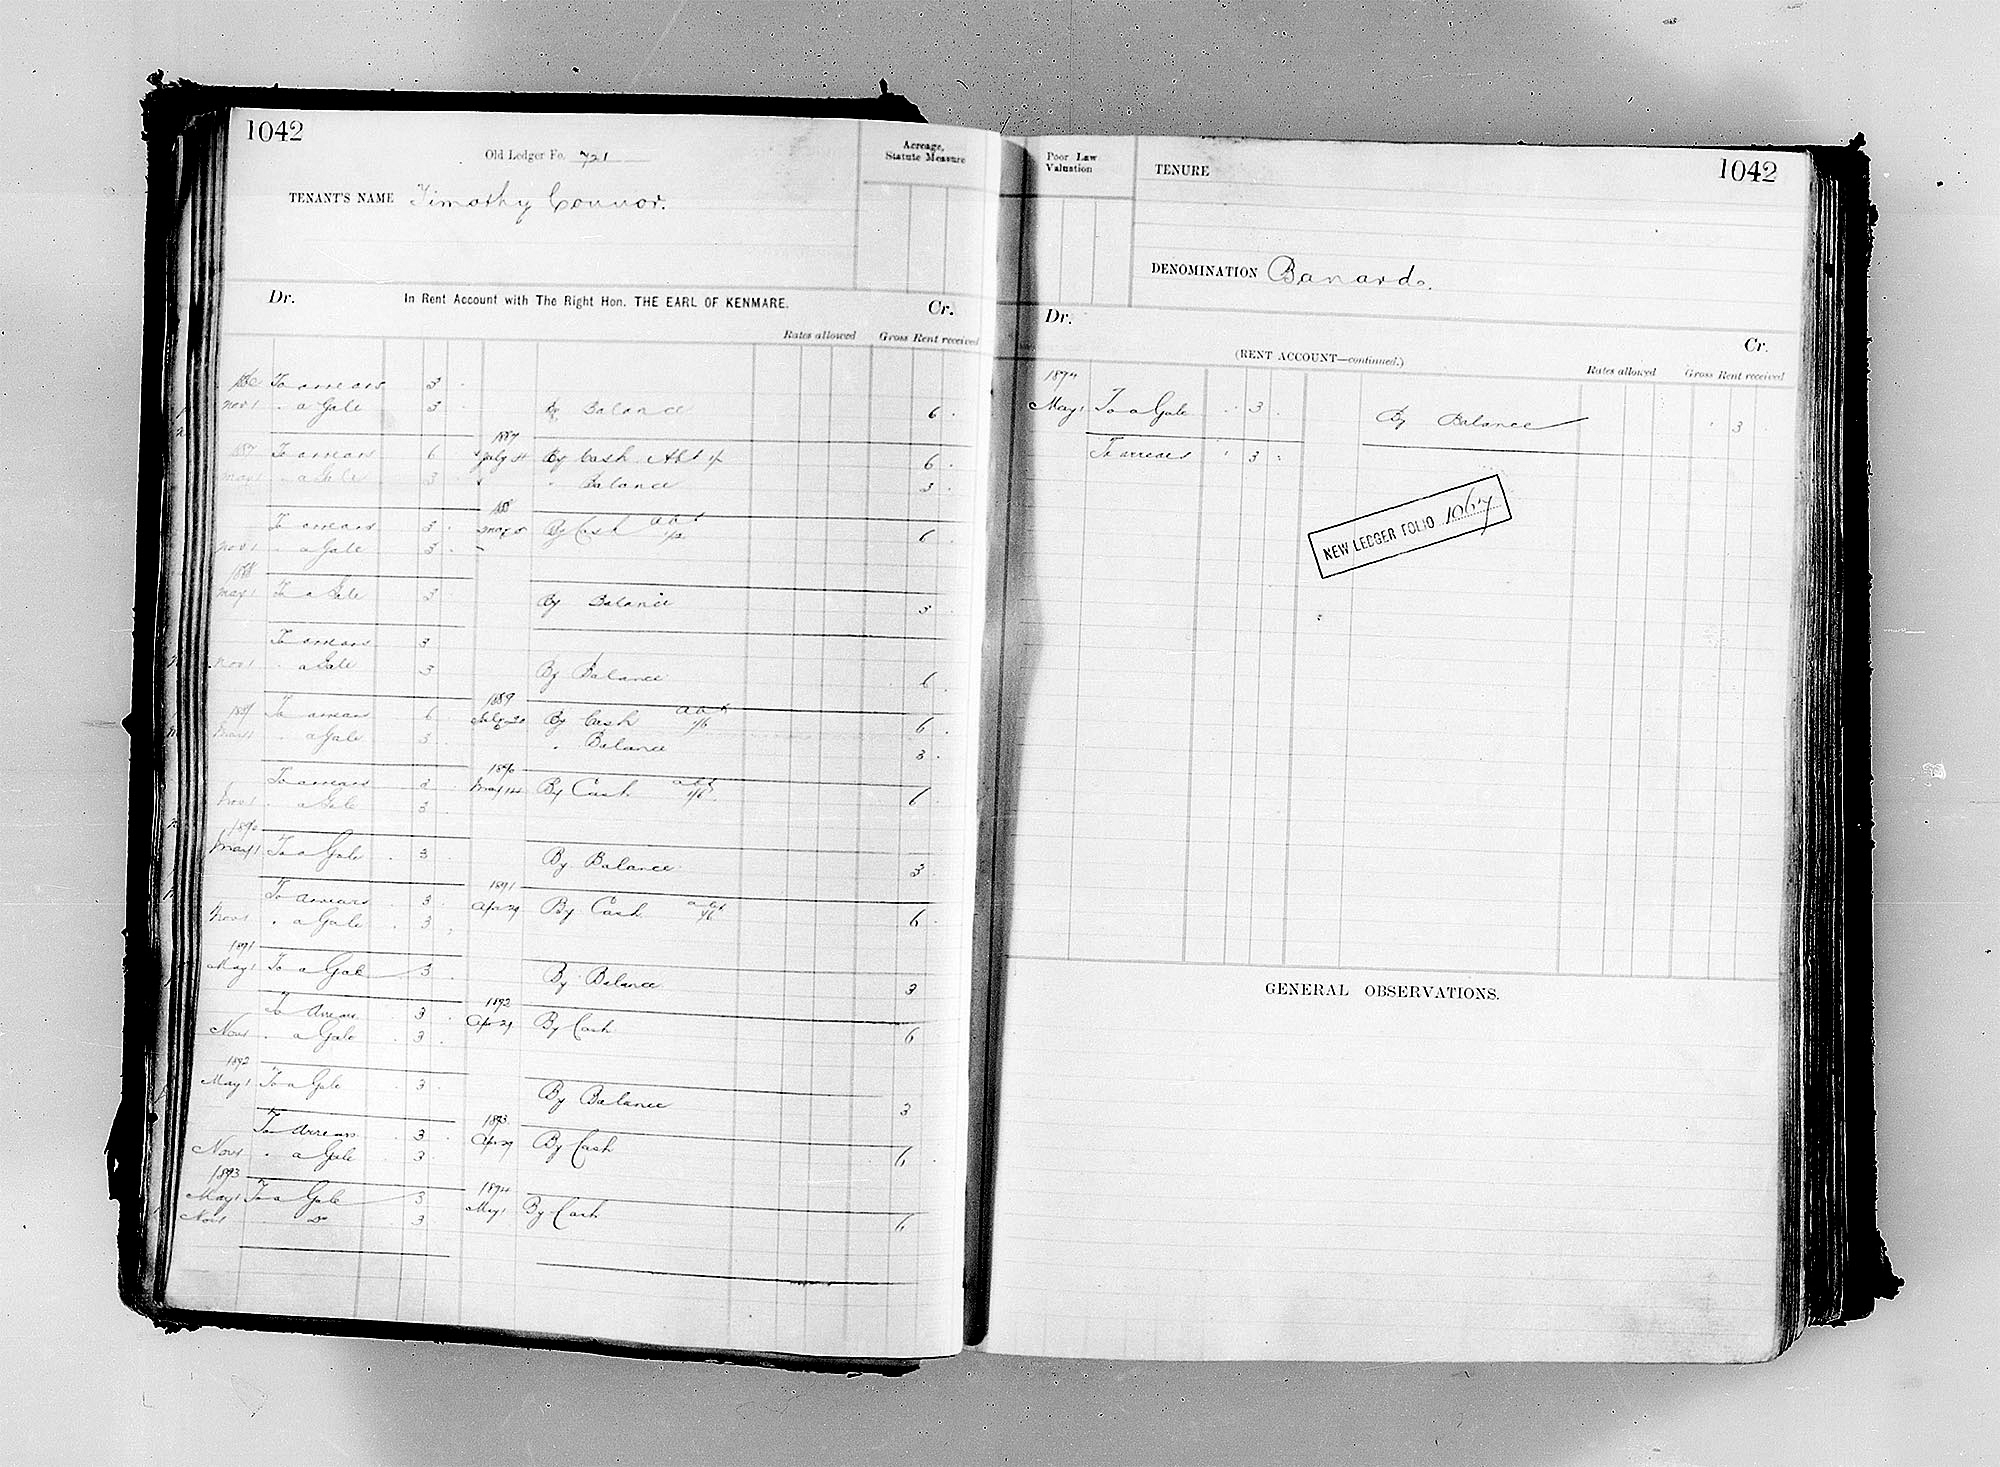 1042
Old Ledger Fo. 721
Acreage,
Statute Measure
TENANT'S NAME Timothy Connor.
Dr. In Rent Account with The Right Hon. THE EARL OF KENMARE. Cr.
Rates allowed Gross Rent received
To arrears 3
Nov 1 " a Gale 3 By Balance 6
1887
1887 To arrears 6 July By Cash 6
May 1 " a Gale 3 " Balance 3
To arrears 3 May By Cash 6
Nov 1 " a Gale 3
1888
May 1 To a Gale 3 By Balance 3
To arrears 3
Nov 1 " a Gale 3 By Balance 6
1889
1889 To arrears 6 July 20 By Cash 1/6 6
May 1 " a Gale 3 " Balance 3
1890
To arrears 3 May 14 By Cash 1/6 6
Nov 1 " a Gale 3
1890
May 1 To a Gale 3 By Balance 3
1891
To arrears 3 Apr 29 By Cash 1/6 6
Nov 1 " a Gale 3
1891
May 1 To a Gale 3 By Balance 3
1892
To Arrears 3 Apr 29 By Cash 6
Nov 1 " a Gale 3
1892
May 1 To a Gale 3 By Balance 3
1893
To Arrears 3 Apr 29 By Cash 6
Nov 1 " a Gale 3
1893 1894
May 1 To a Gale 3 May 1 By Cash 6
Nov 1 Do 3
Poor Law
Valuation
TENURE
1042
DENOMINATION Banard.
Dr. Cr.
(RENT ACCOUNT—continued.)
Rates allowed Gross Rent received
1894
May 1 To a Gale 3 By Balance 3
To arrears 3
NEW LEDGER FOLIO 1067
GENERAL OBSERVATIONS.